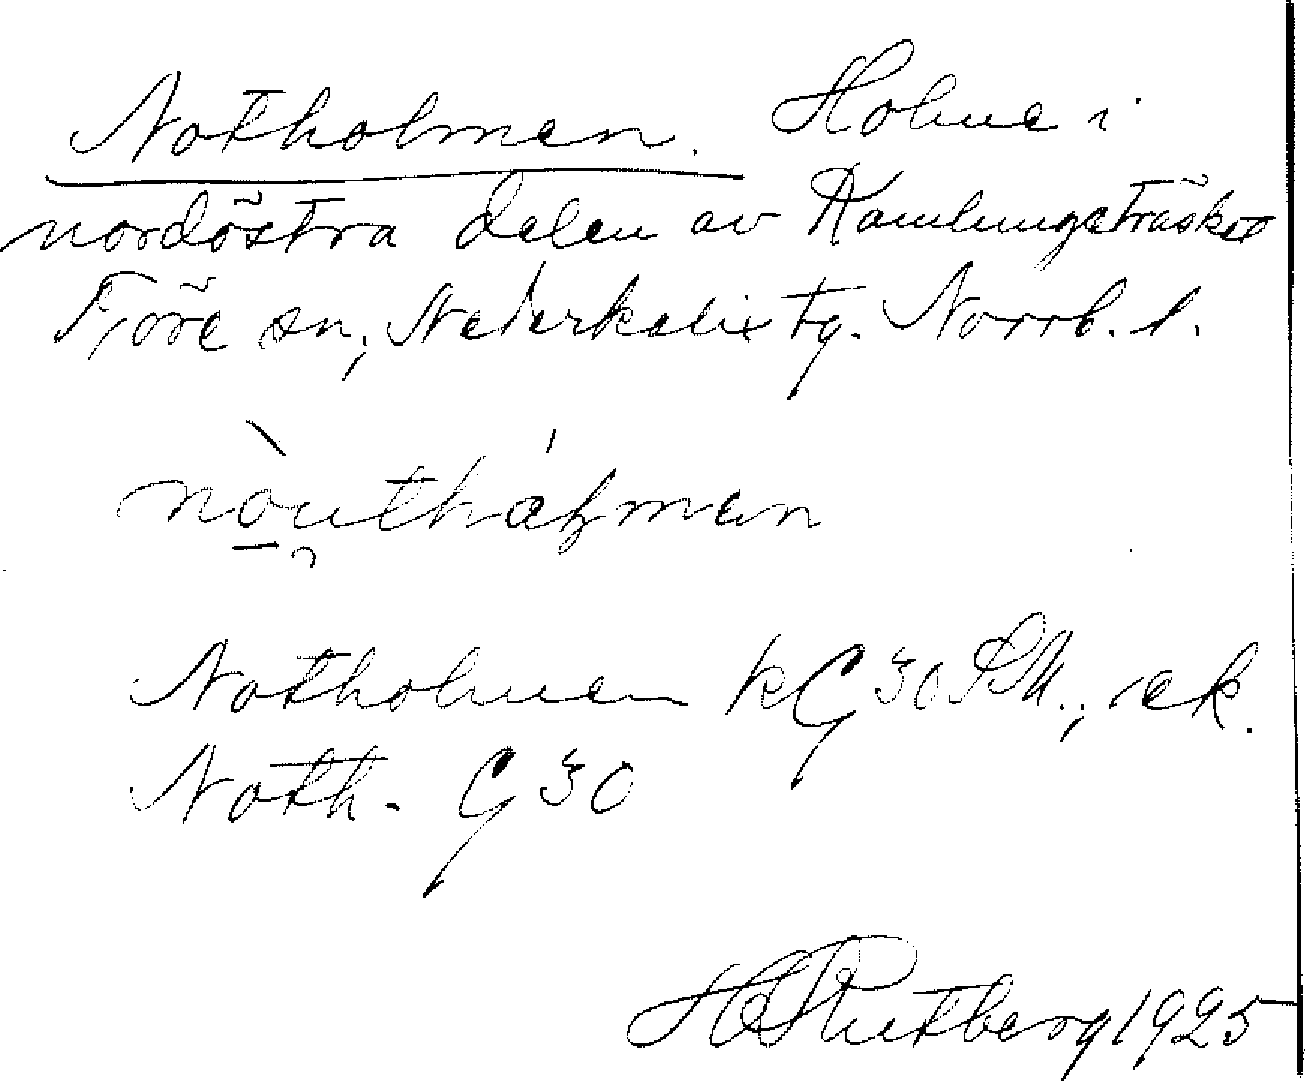 Notholmen. Holme i
nordöstra delen av Kamlungeträsket
Töre sn, Nederkalix tg. Norrb. l.
nòuthálman
Notholmen kG 30 SM., ek.
Noth. G 30
H Rutberg 1925